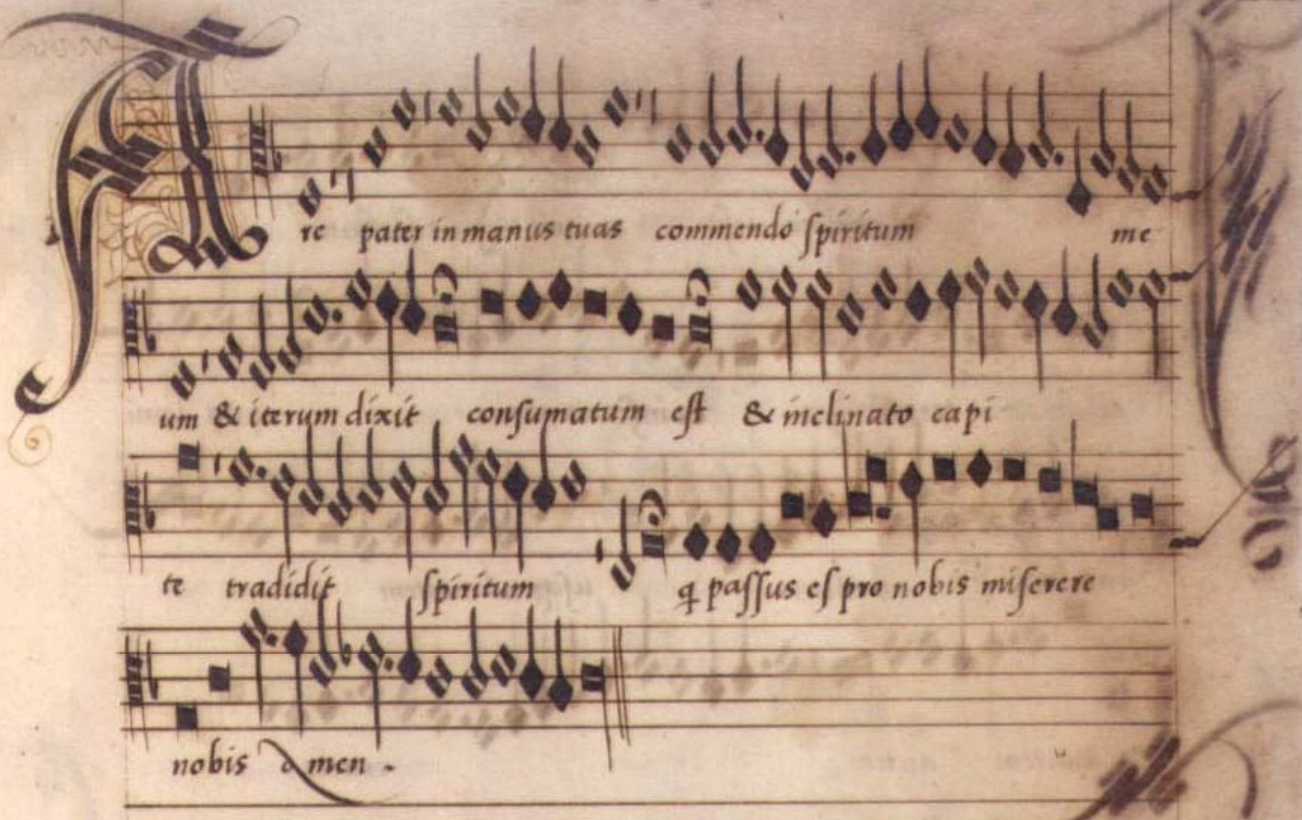 Are pater in manus tuas commendo ſpiritum me
um & iterum dixit conſumatum eſt & inclinato capi
te tradidit ſpiritum q̃ paſſus eſ pro nobis miſerere
nobis amen -